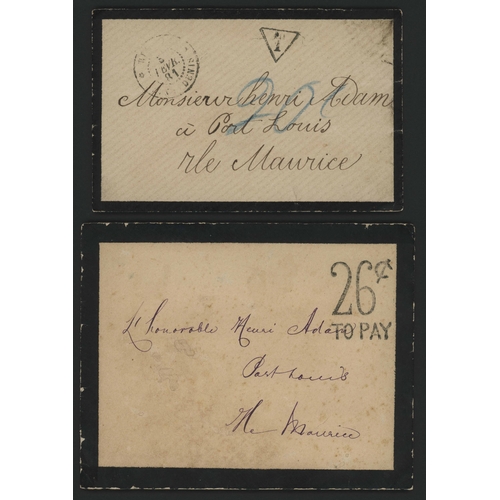 T
FEVR.
81
DENIS
Monsieur Henri Adam
à Port Louis
Ile Maurice
26¢
TO PAY
L'honorable Henri Adam
Port Louis
Ile Maurice